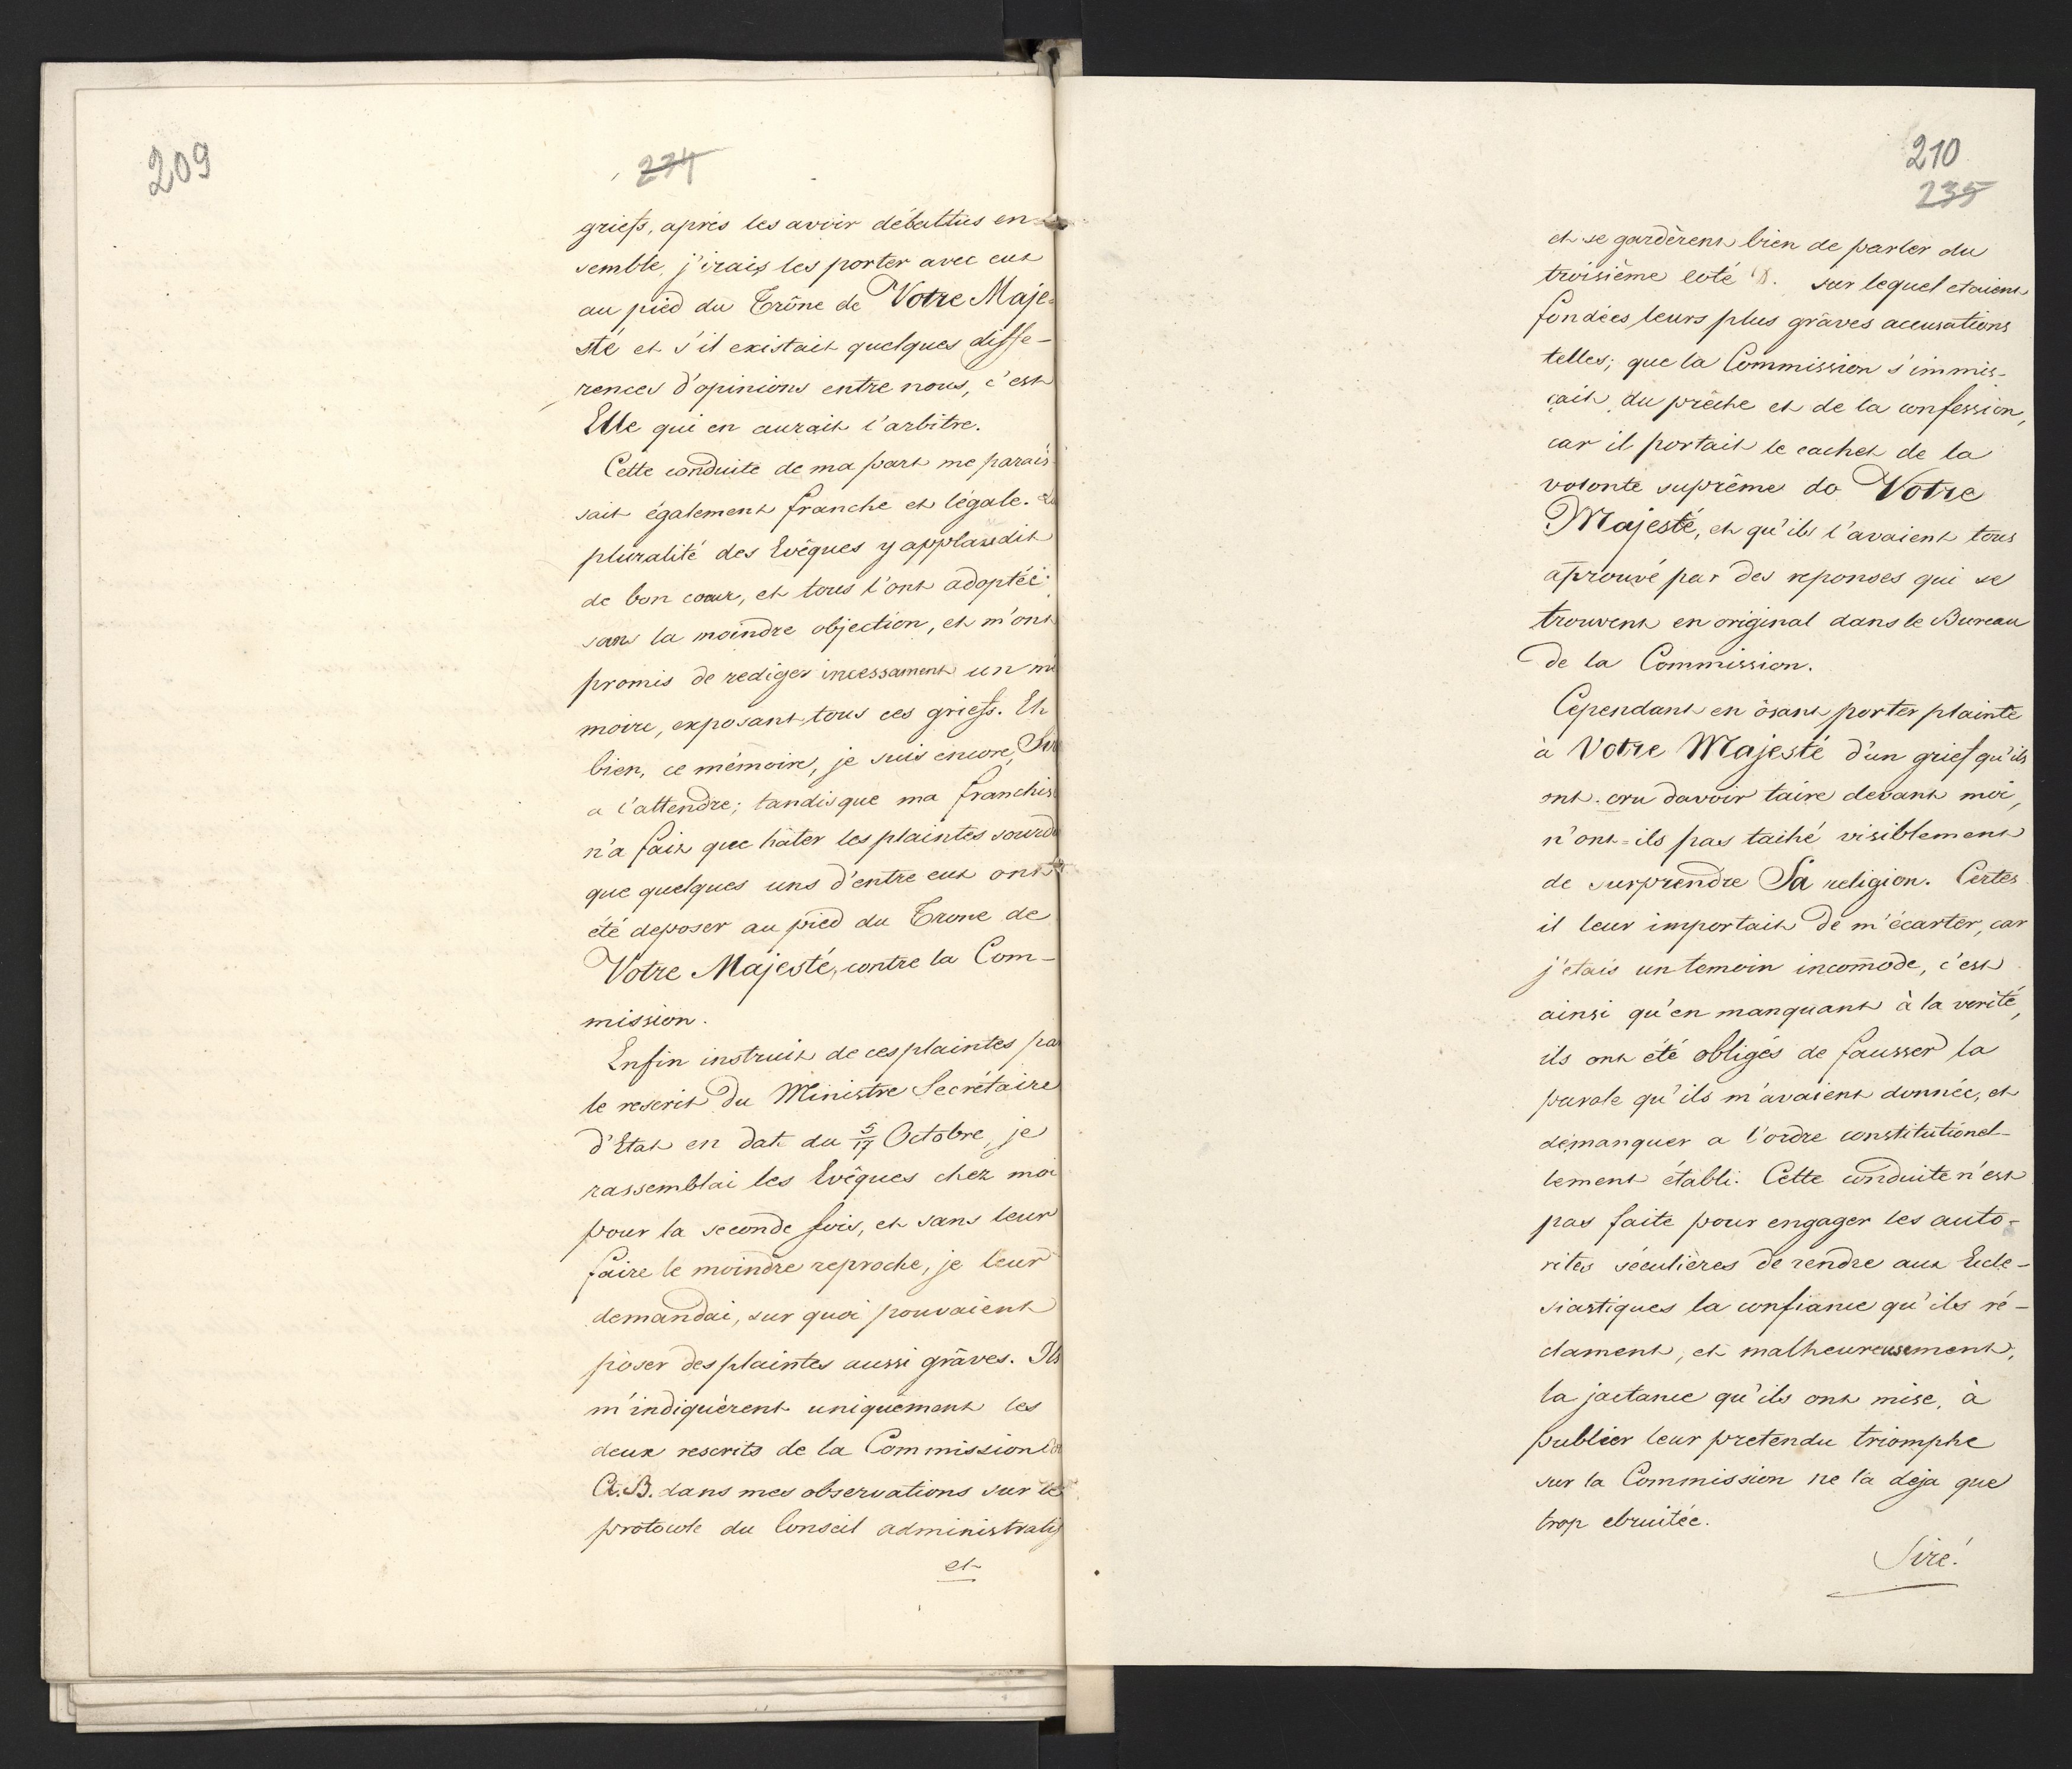 209
234
griefs, après les avoir débattus en-
semble, j'irais les porter avec eux
au pied du Trône de Votre Maje-
sté et s'il existait quelques diffe-
rences d'opinions entre nous, c'est
Elle qui en aurait l'arbitre.
Cette conduite de ma part me parais-
sait également franche et légale. La
pluralité des Evêques y applaudit
de bon coeur, et tous l'ont adoptée
sans la moindre objection, et m'ont
promis de rediger incessament un mé
moire, exposant tous ces griefs. Eh
bien, ce mémoire, je suis encore, Sire
a l'attendre; tandisque ma franchise
n'a fait que hâter les plaintes sourdes
que quelques uns d'entre eux ont
été deposer au pied du Trone de
Votre Majesté, contre la Com-
mission.
Enfin instruit de ces plaintes par
le rescrit du Ministre Secrétaire
d'Etat en date du 5/17 Octobre, je
rassemblai les Evêques chez moi
pour la seconde fois, et sans leur
faire le moindre reproche, je leur
demandai, sur quoi pouvaient
poser des plaintes aussi grâves. Ils
m'indiquèrent uniquement les
deux rescrits de la Commission
A.B. dans mes observations sur le
protocole du Conseil administratif
et
210
235
et se gardèrent bien de parler du
troisième coté D. sur lequel etaient
fondées leurs plus grâves accusations
telles; que la Commission s'immis-
çait du prêche et de la confession,
car il portait le cachet de la
volonte suprême de Votre
Majesté, et qu'ils l'avaient tous
aprouvé par des reponses qui se
trouvent en original dans le Bureau
de la Commission.
Cependant en ôsant porter plainte
à Votre Majesté d'un grief qu'ils
ont cru davoir taire devant moi,
n'ont-ils pas taché visiblement
de surprendre Sa religion. Certes
il leur importait de m'écarter, car
j'etais un temoin incom̄ode, c'est
ainsi qu'en manquant à la verité,
ils ont été obligés de fausser la
parole qu'ils m'avaient donnée, et
demanquer a l'ordre constitutionel-
lement établi. Cette conduite n'est
pas faite pour engager les auto-
rites séculières de rendre aux Eccle-
siastiques la confiance qu'ils ré-
clament, et malheureusement,
la jactance qu'ils ont mise, à
publier leur pretendu triomphe
sur la Commission ne l'a deja que
trop ebruitée.
Sire!